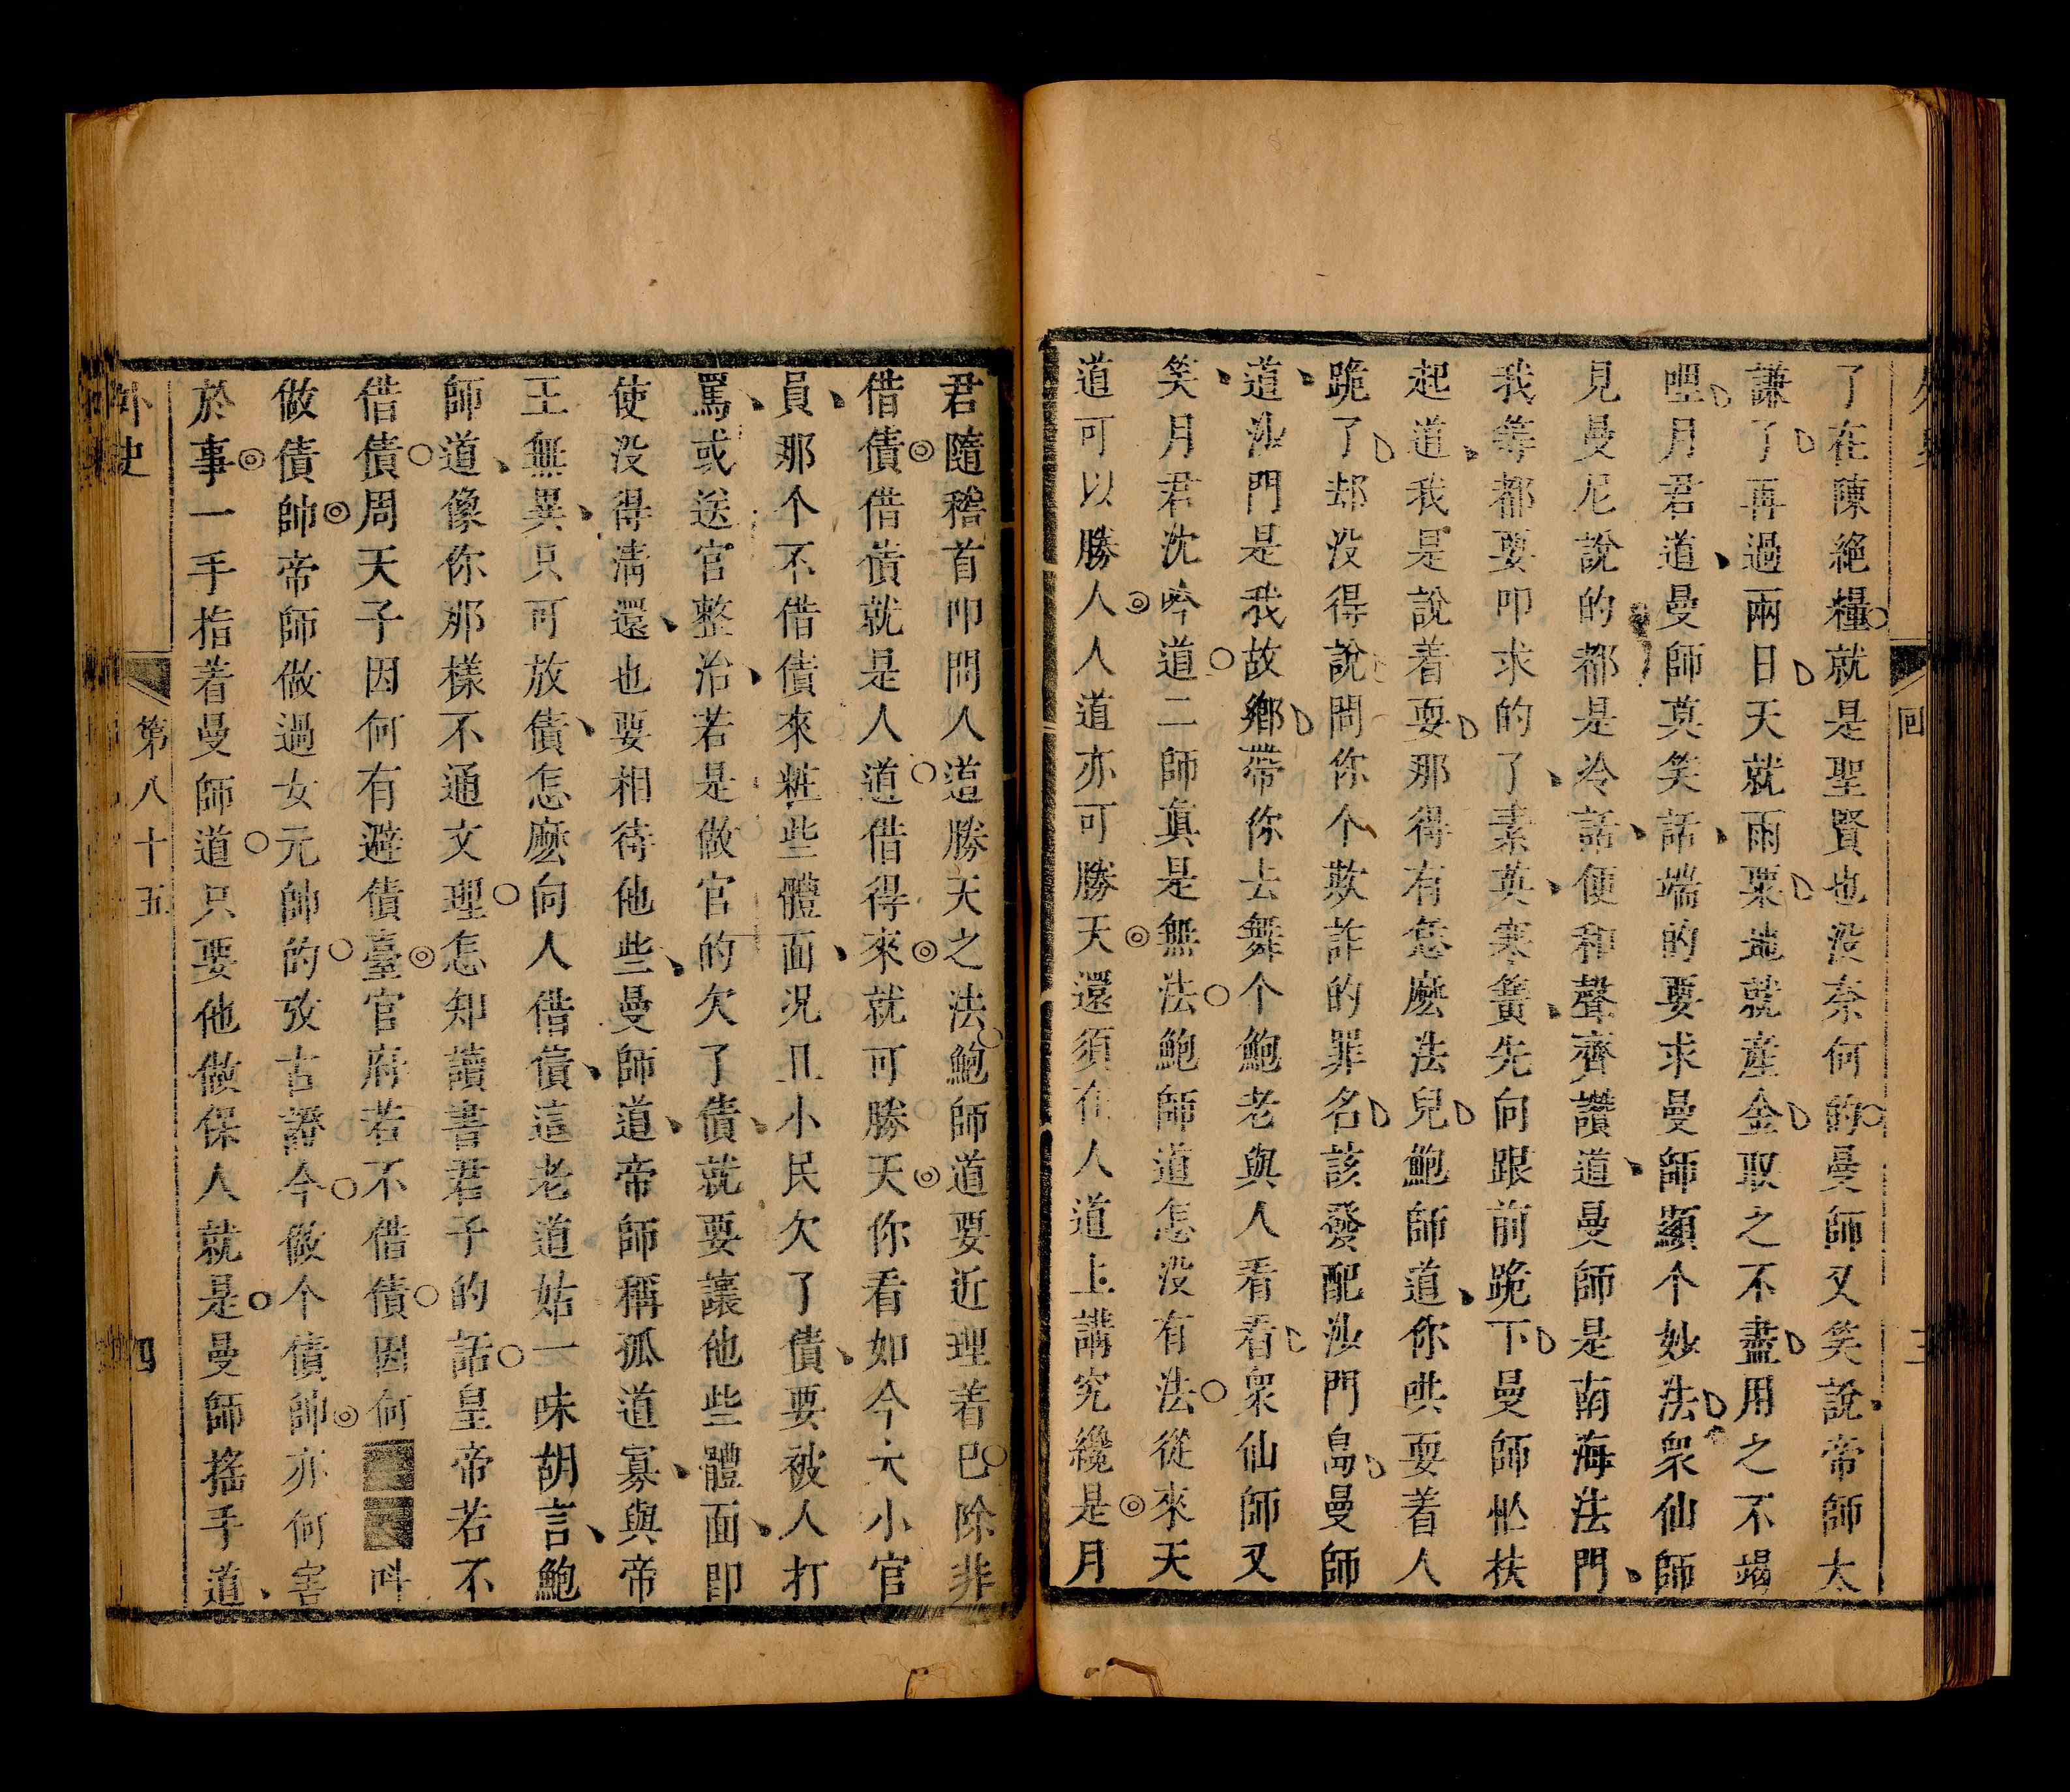 了在陳絕糧就是聖賢也没奈何的曼師又笑說帝師太
謙了再過兩日天就雨粟地就產金取之不盡用之不竭
哩月君道曼師莫笑話端的要求曼師顯个妙法衆仙師
見曼尼說的都是冷話便和聲齊讚道曼師是南海法門
我等都要叩求的了素英寒簧先向跟前跪下曼師忙扶
起道我是說着耍那得有怎麽法兒鮑師道你哄耍着人
跪了却没得說問你个欺詐的罪名該發配沙門島曼師
道沙門是我故鄉帶你去舞个鮑老與人看看衆仙師又
笑月君沈吟道二師真是無法鮑師道怎没有法從來天
道可以勝人人道亦可勝天還須在人道上講究纔是月
君隨稽首叩問人道勝天之法鮑師道要近理着已除非
借債借債就是人道借得來就可勝天你看如今大小官
員那个不借債來粧些體面况且小民欠了債要被人打
罵或送官整治若是做官的欠了債就要讓他些體面即
使没得清還也要相待他些曼師道帝師稱孤道寡與帝
王無異只可放債怎麽向人借債這老道姑一味胡言鮑
師道像你那樣不通文理怎知讀書君子的話皇帝若不
借債周天子因何有避債臺官府若不借債因何■■呌
做債帥帝師做過女元帥的攷古證今做个債帥亦何害
於事一手指着曼師道只要他做保人就是曼師搖手道
外史
第八十五
四